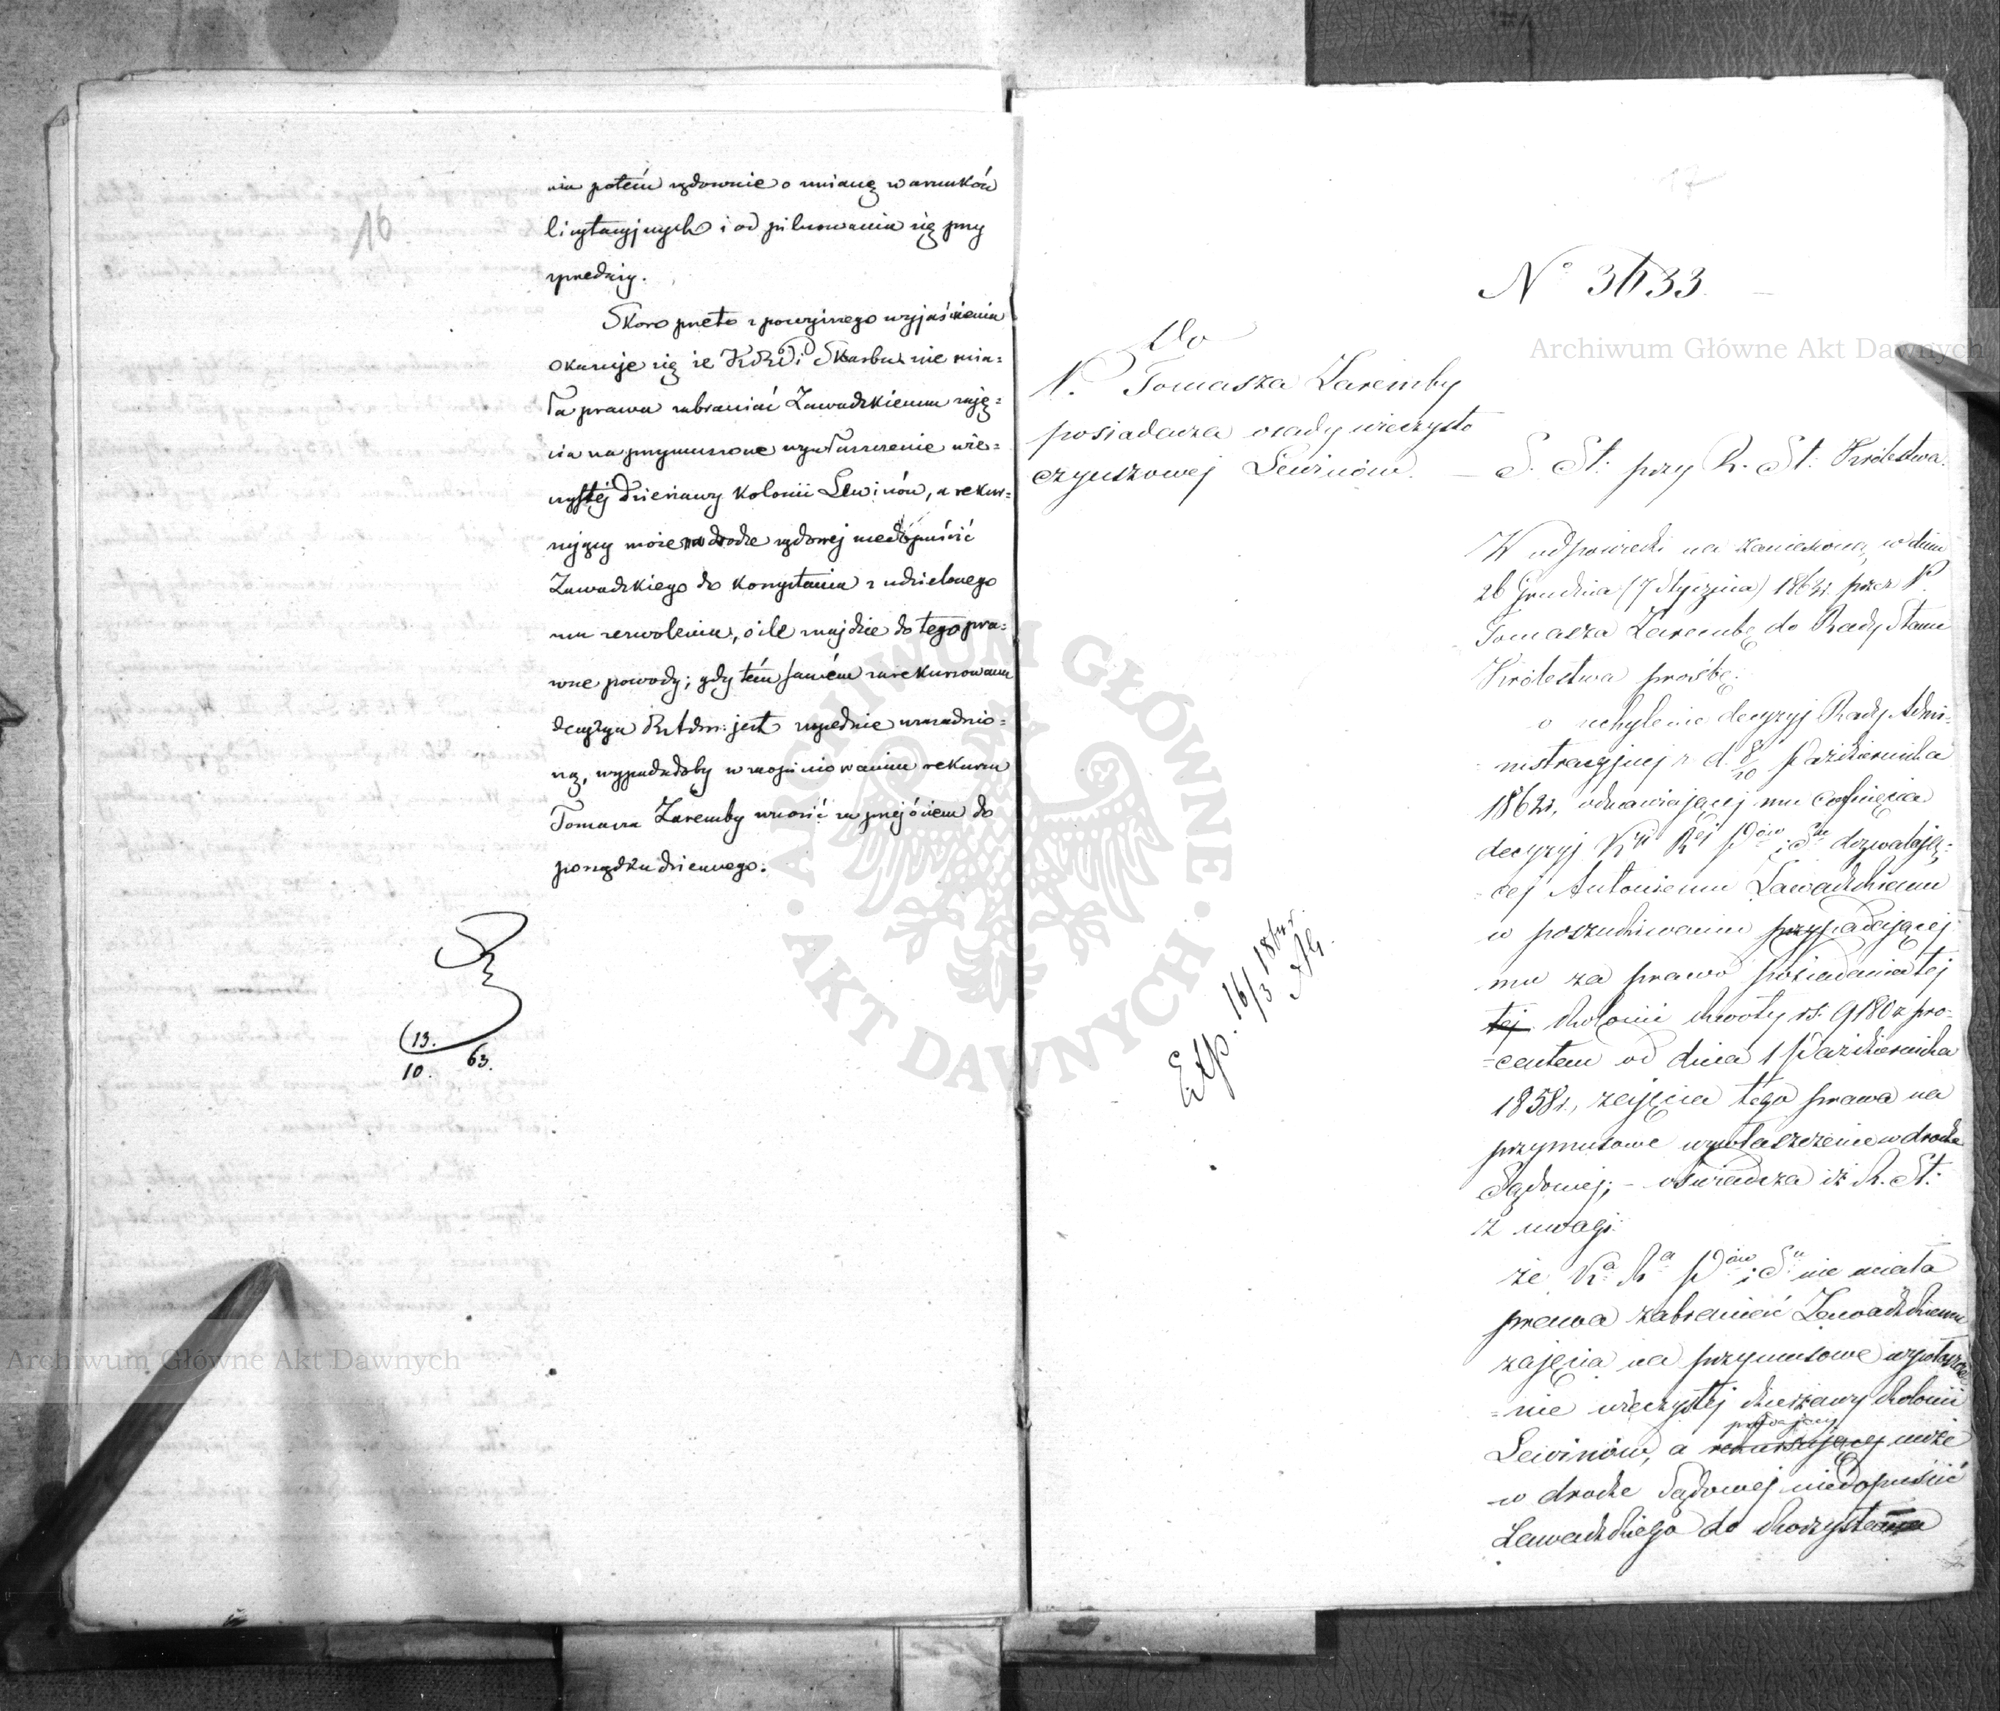 16
nia potém sądownie o zmianę warunków
licytacyjnych i od pilnowania się przy
sprzedaży.
Skoro przeto z powyższego wyjaśnienia
okazuje się że KRP i Skarbu nie mia-
ła prawa zabraniać Zawadzkiemu zaję-
cia na przymusowe wywłaszczenie wie-
czystej dzierżawy kolonii Lewinów, a rekur-
rujący może na drodze sądowej niedopuścić
Zawadzkiego do korzystania z udzielonego
mu zezwolenia, o ile znajdzie do tego pra-
wne powody; gdy tém samém zarekursowana
decyzya R. Adm: jest zupełnie uzasadnio-
ną, wypadałoby w zaopiniowaniu rekursu
Tomasza Zaremby wnosić za przejściem do
porządku dziennego.
13.
10. 63.
Do
P. Tomasza Zaremby
posiadacza osady wieczysto
czynszowej Lewinów.
Exp. 16/3 1864r.
No 3433.
S. St: przy R. St: Królestwa.
W odpowiedzi na zaniesioną w dniu
26 Grudnia (7 Stycznia) 186 r. przez P.
Tomasza Zarembę do Rady Stanu
Królestwa prośbę:
o uchylenie decyzyj Rady Admi-
nistracyjnej z d. 8/20 Października
1862r, odmawiającej mu cofnięcia
decyzyj Kyi Rej Pów i Su dozwalają-
cej Antoniemu Zawadzkiemu
w poszukiwaniu przypadającej
mu za prawo posiadania tej
tej kolonii kwoty rs. 9180 z pro-
centem od dnia 1 Października
1858r., zajęcia tego prawa na
przymusowe wywłaszczenie w drodze
Sądowej; - oświadcza iż R. St:
z uwagi:
że Ka Ra Pów i Su nie miała
prawa zabraniać Zawadzkiemu
zajęcia na przymusowe wywłaszcze-
nie wieczystej dzierżawy kolonii
Lewinów, a rekursujący może
w drodze Sądowej niedopuścić
Zawadzkiego do korzystania
Archiwum Główne Akt Dawnych
Archiwum Główne Akt Dawnych
ARCHIWUM GŁÓWNE AKT DAWNYCH